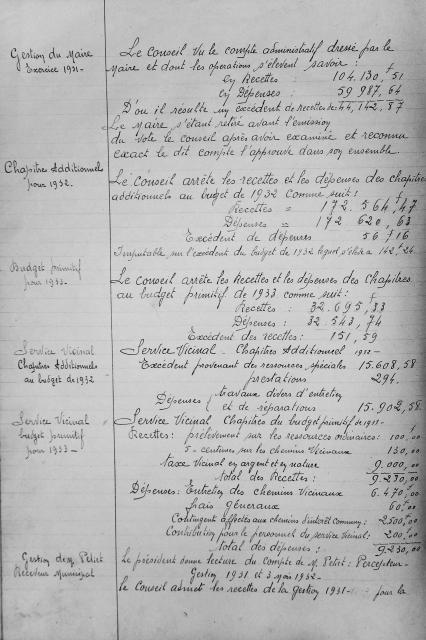 Gestion du Maire
Exercice 1931-
Le Conseil Vu le compte administratif dressé par le
Maire et dont les opérations s'élèvent savoir :
en Recettes 104.130,51
en Dépenses : 59 987,64
D'où il résulte un excédent de recettes de 44,142,87
Le Maire s'étant retiré avant l'émission
du vote le conseil après avoir examiné et reconnu
exact le dit compte l'approuve dans son ensemble.
Chapitres Additionnels
pour 1932.
Le Conseil arrête les recettes et les dépenses des chapitres
additionnels au buget de 1932 comme suit :
Recettes = 172.564,47
Dépenses = 172 620,63
Excédent de dépenses 56 716
Imputable sur l'excédent du budget de 1932 lequel s'élève à 142 24
Budget primitif
pour 1933.
Le Conseil arrête les Recettes et les dépenses des Chapitres
au budget primitif de 1933 comme suit :
Recettes : 32.695,33
Dépenses : 32.543,74
Excédent des recettes : 151,59
Service Vicinal
Chapitres Additionnels
au budget de 1932
Service Vicinal - Chapitres Additionnel 1932 -
Excédent provenant des ressources spéciales 15.608,58
prestations 294.
Dépenses travaux divers d'entretien
et de réparations 15.902,58
Service Vicinal
budget primitif
pour 1933 -
Service Vicinal Chapitres du budget primitif de
Recettes : prélèvement sur les ressources ordinaires : 100,00
5 centimes sur les chemins Vicinaux 130,00
taxe Vicinal en argent et en nature 9.000,00
total des Recettes : 9.230,00
Dépenses : Entretien des chemins Vicinaux 6.470,00
frais généraux 60,00
Contingent affectés aux chemins d'intérêt commun : 2.500,00
Contribution pour le personnel du service Vicinal : 200,00
total des dépenses : 9.230,00
Gestion de M. Petit
Receveur Municipal
Le président donne lecture du compte de M. Petit : Percepteur -
Gestion 1931 et 3 mois 1932 -
le Conseil admet les recettes de la gestion 1931 - pour la